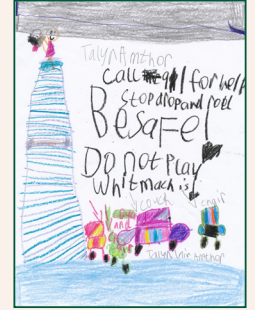 Talyn Amthor
call 911 for help
Stop drop and roll
Be safe!
Do not Play
Whit maches
couch
chair